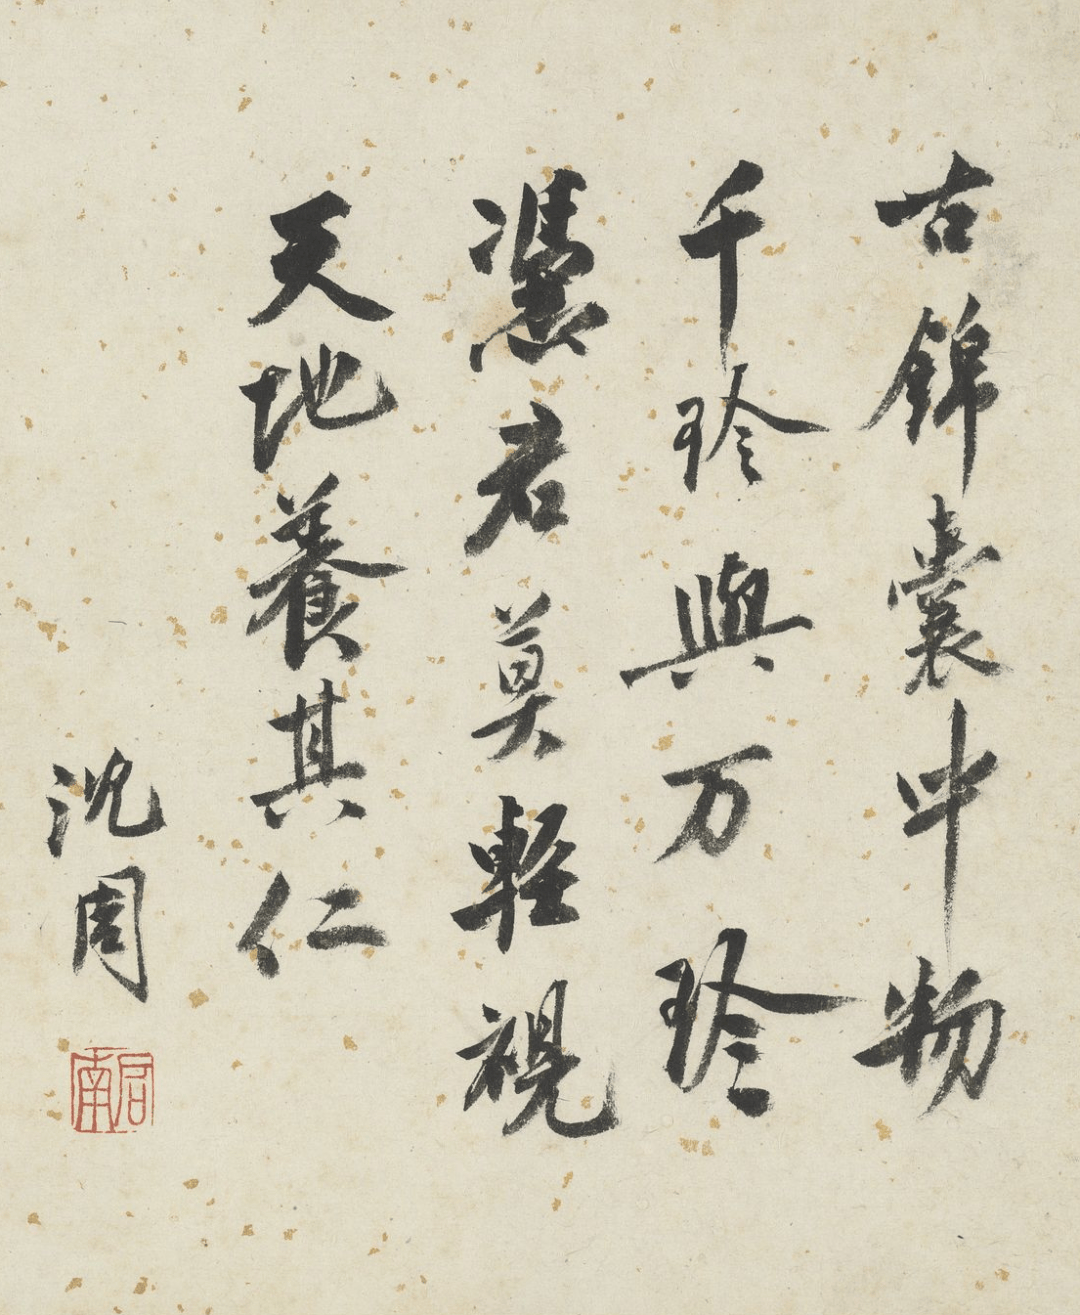 古錦囊中物
千珍與万珍
憑君莫輕視
天地養其仁
沈周
啟南